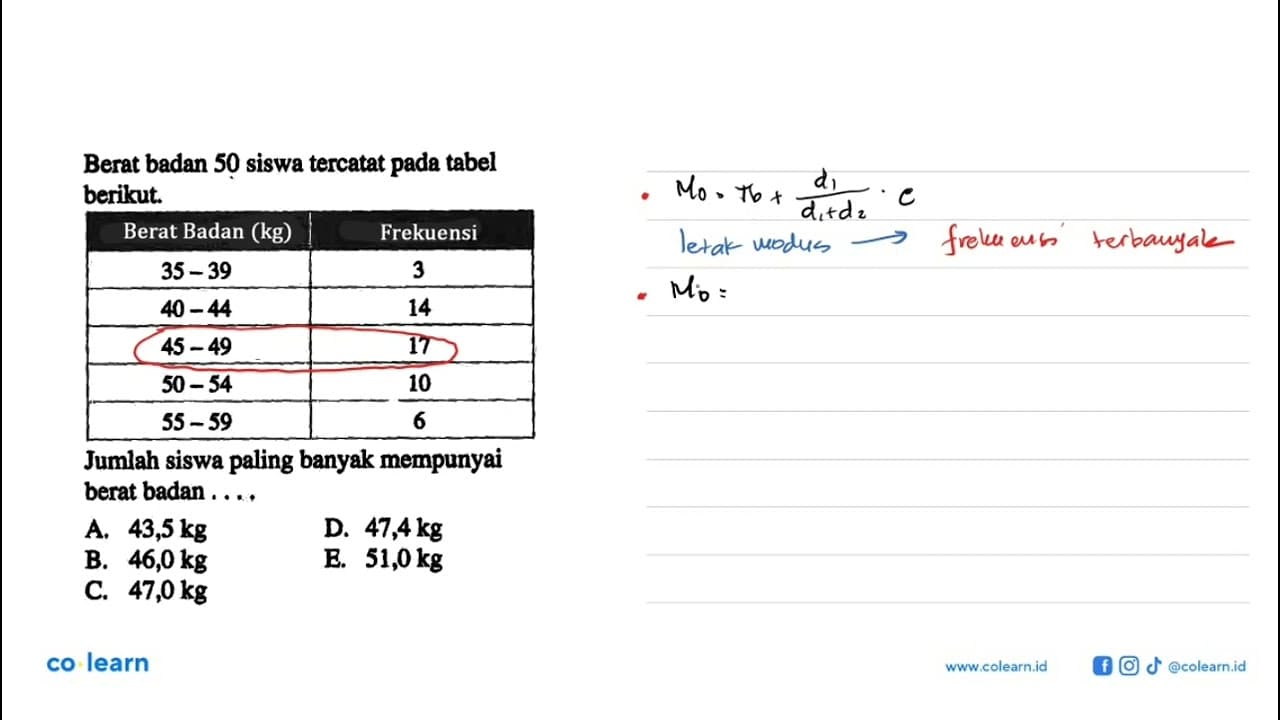 Berat badan 50 siswa tercatat pada tabel
berikut.
Berat Badan (kg) Frekuensi
35 – 39 3
40 – 44 14
45 – 49 17
50 – 54 10
55 – 59 6
Jumlah siswa paling banyak mempunyai
berat badan . . . .
A. 43,5 kg D. 47,4 kg
B. 46,0 kg E. 51,0 kg
C. 47,0 kg
• Mo = Tb + d₁/(d₁+d₂) · c
letak modus → frekuensi terbanyak
• Mo =
co learn
www.colearn.id @colearn.id